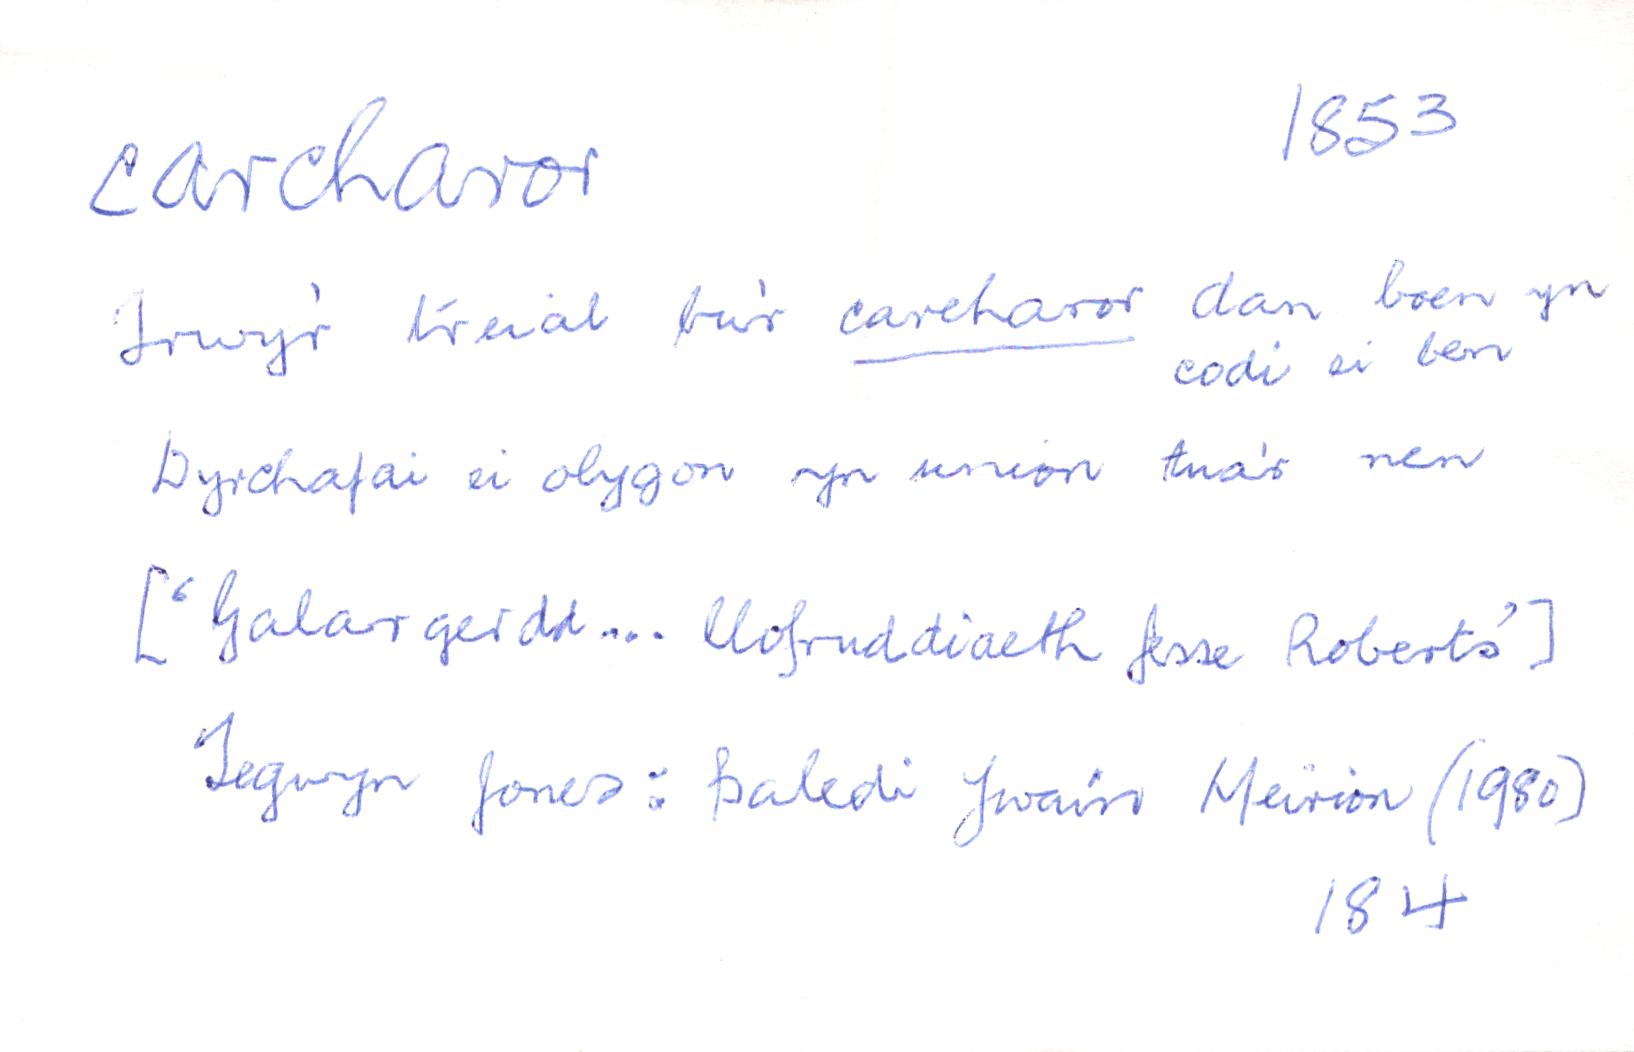 carcharor
1853
Trwy'r treial bu'r carcharor dan boen yn
codi ei ben
Dyrchafai ei olygon yn union tua'r nen
[‘Galargerdd... llofruddiaeth Jesse Roberts’]
Tegwyn Jones: Baledi Ywain Meirion (1980)
184